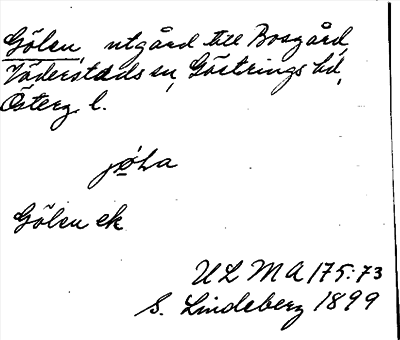 Gölen, utgård till Bosgård,
Väderstads sn, Göstrings hd,
Österg. l.
Gölen ek
ULMA 175:73
S. Lindeberg 1899